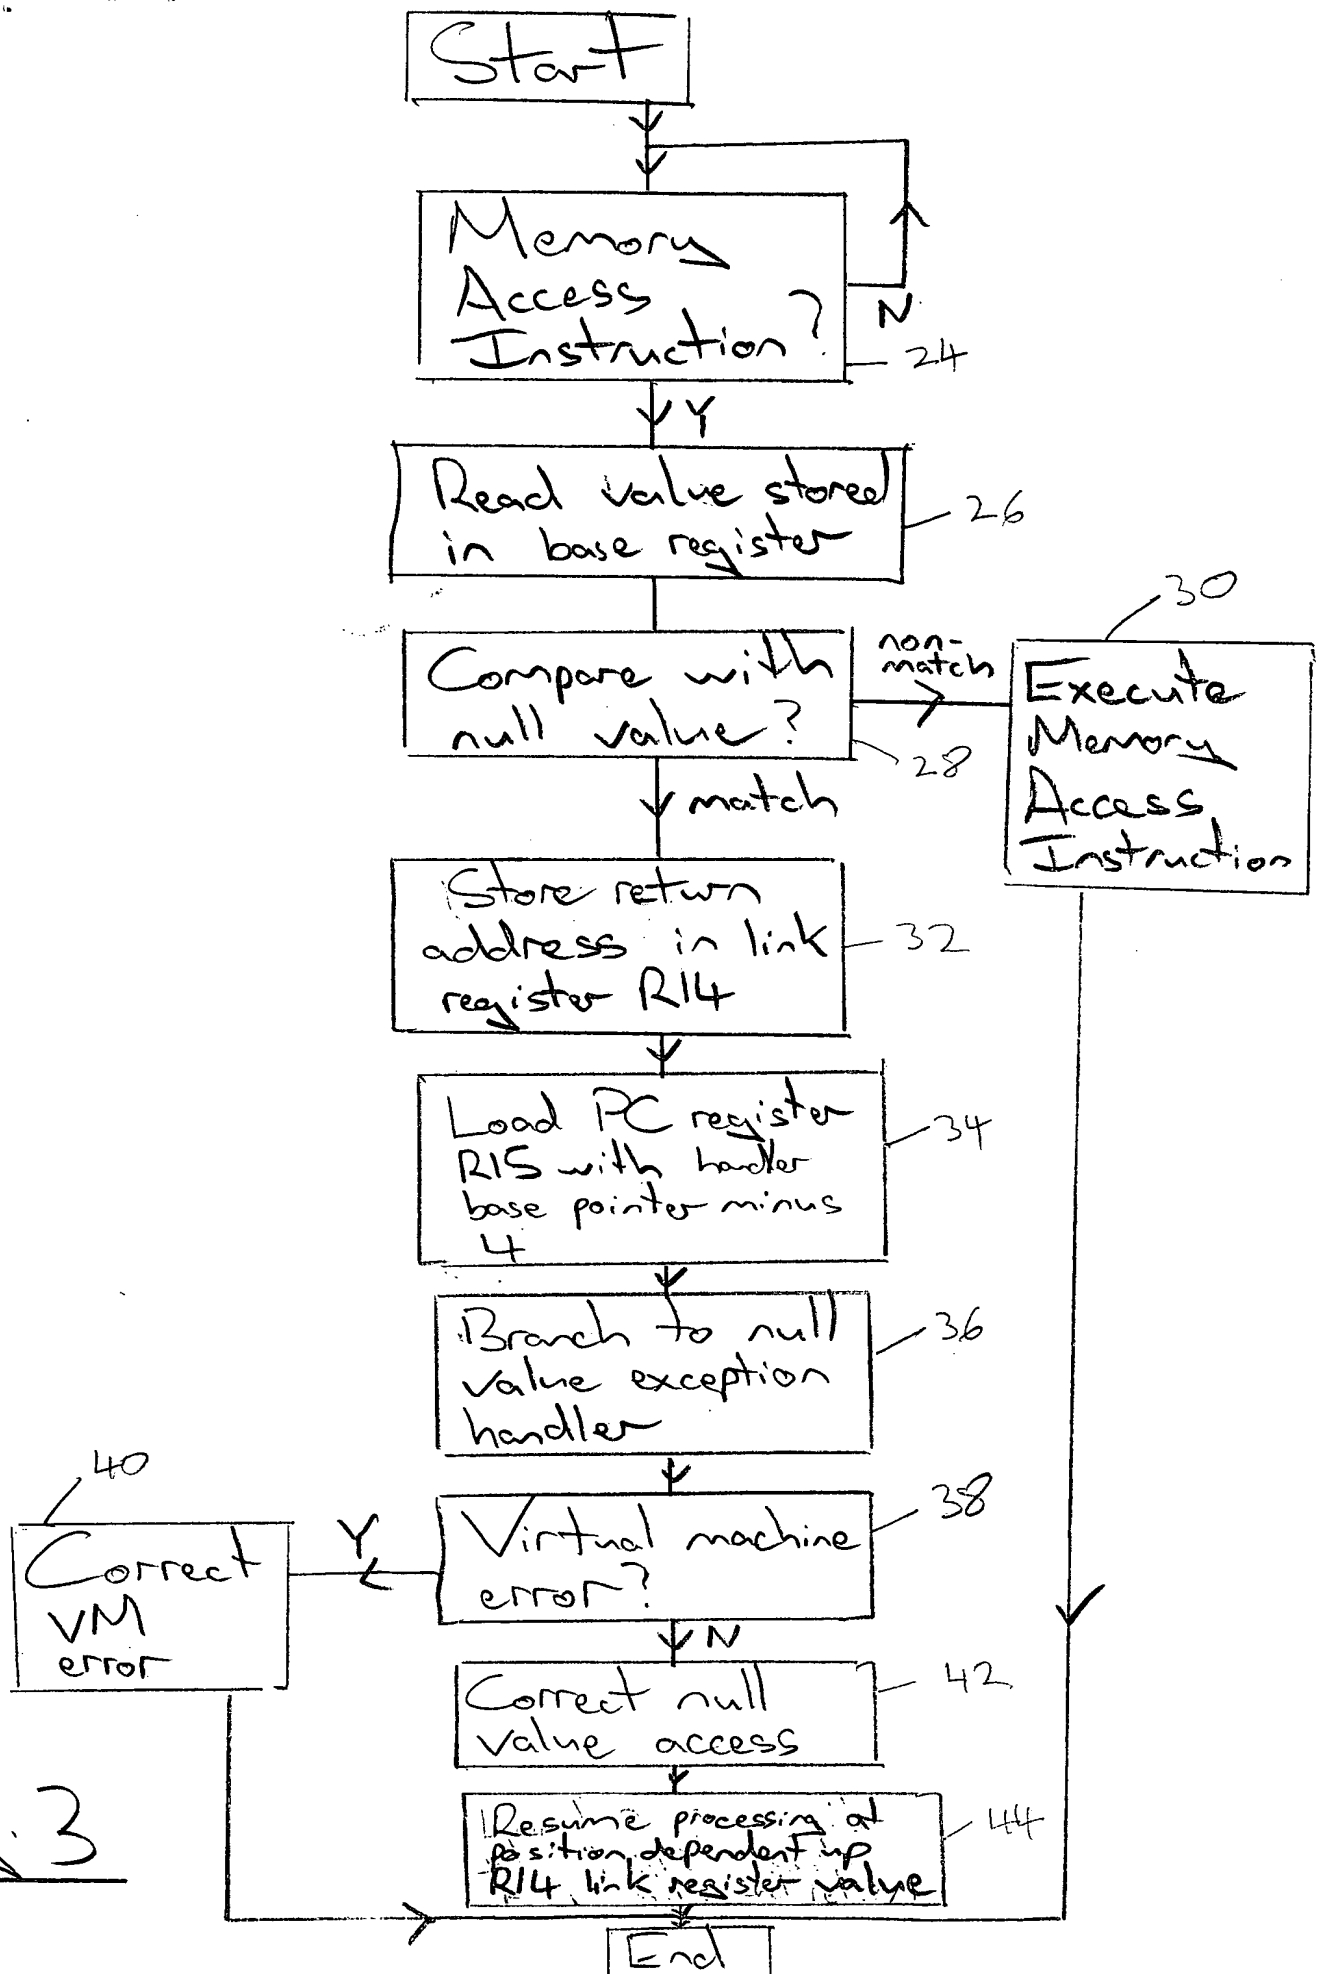 Start
Memory
Access
Instruction?
N
24
Y
Read value stored
in base register
26
Compare with
null value?
28
non-
match
30
Execute
Memory
Access
Instruction
match
Store return
address in link
register R14
32
Load PC register
R15 with handler
base pointer minus
4
34
Branch to null
value exception
handler
36
Virtual machine
error?
38
Y
40
Correct
VM
error
N
Correct null
value access
42
Resume processing at
position dependent up
R14 link register value
44
End
. 3